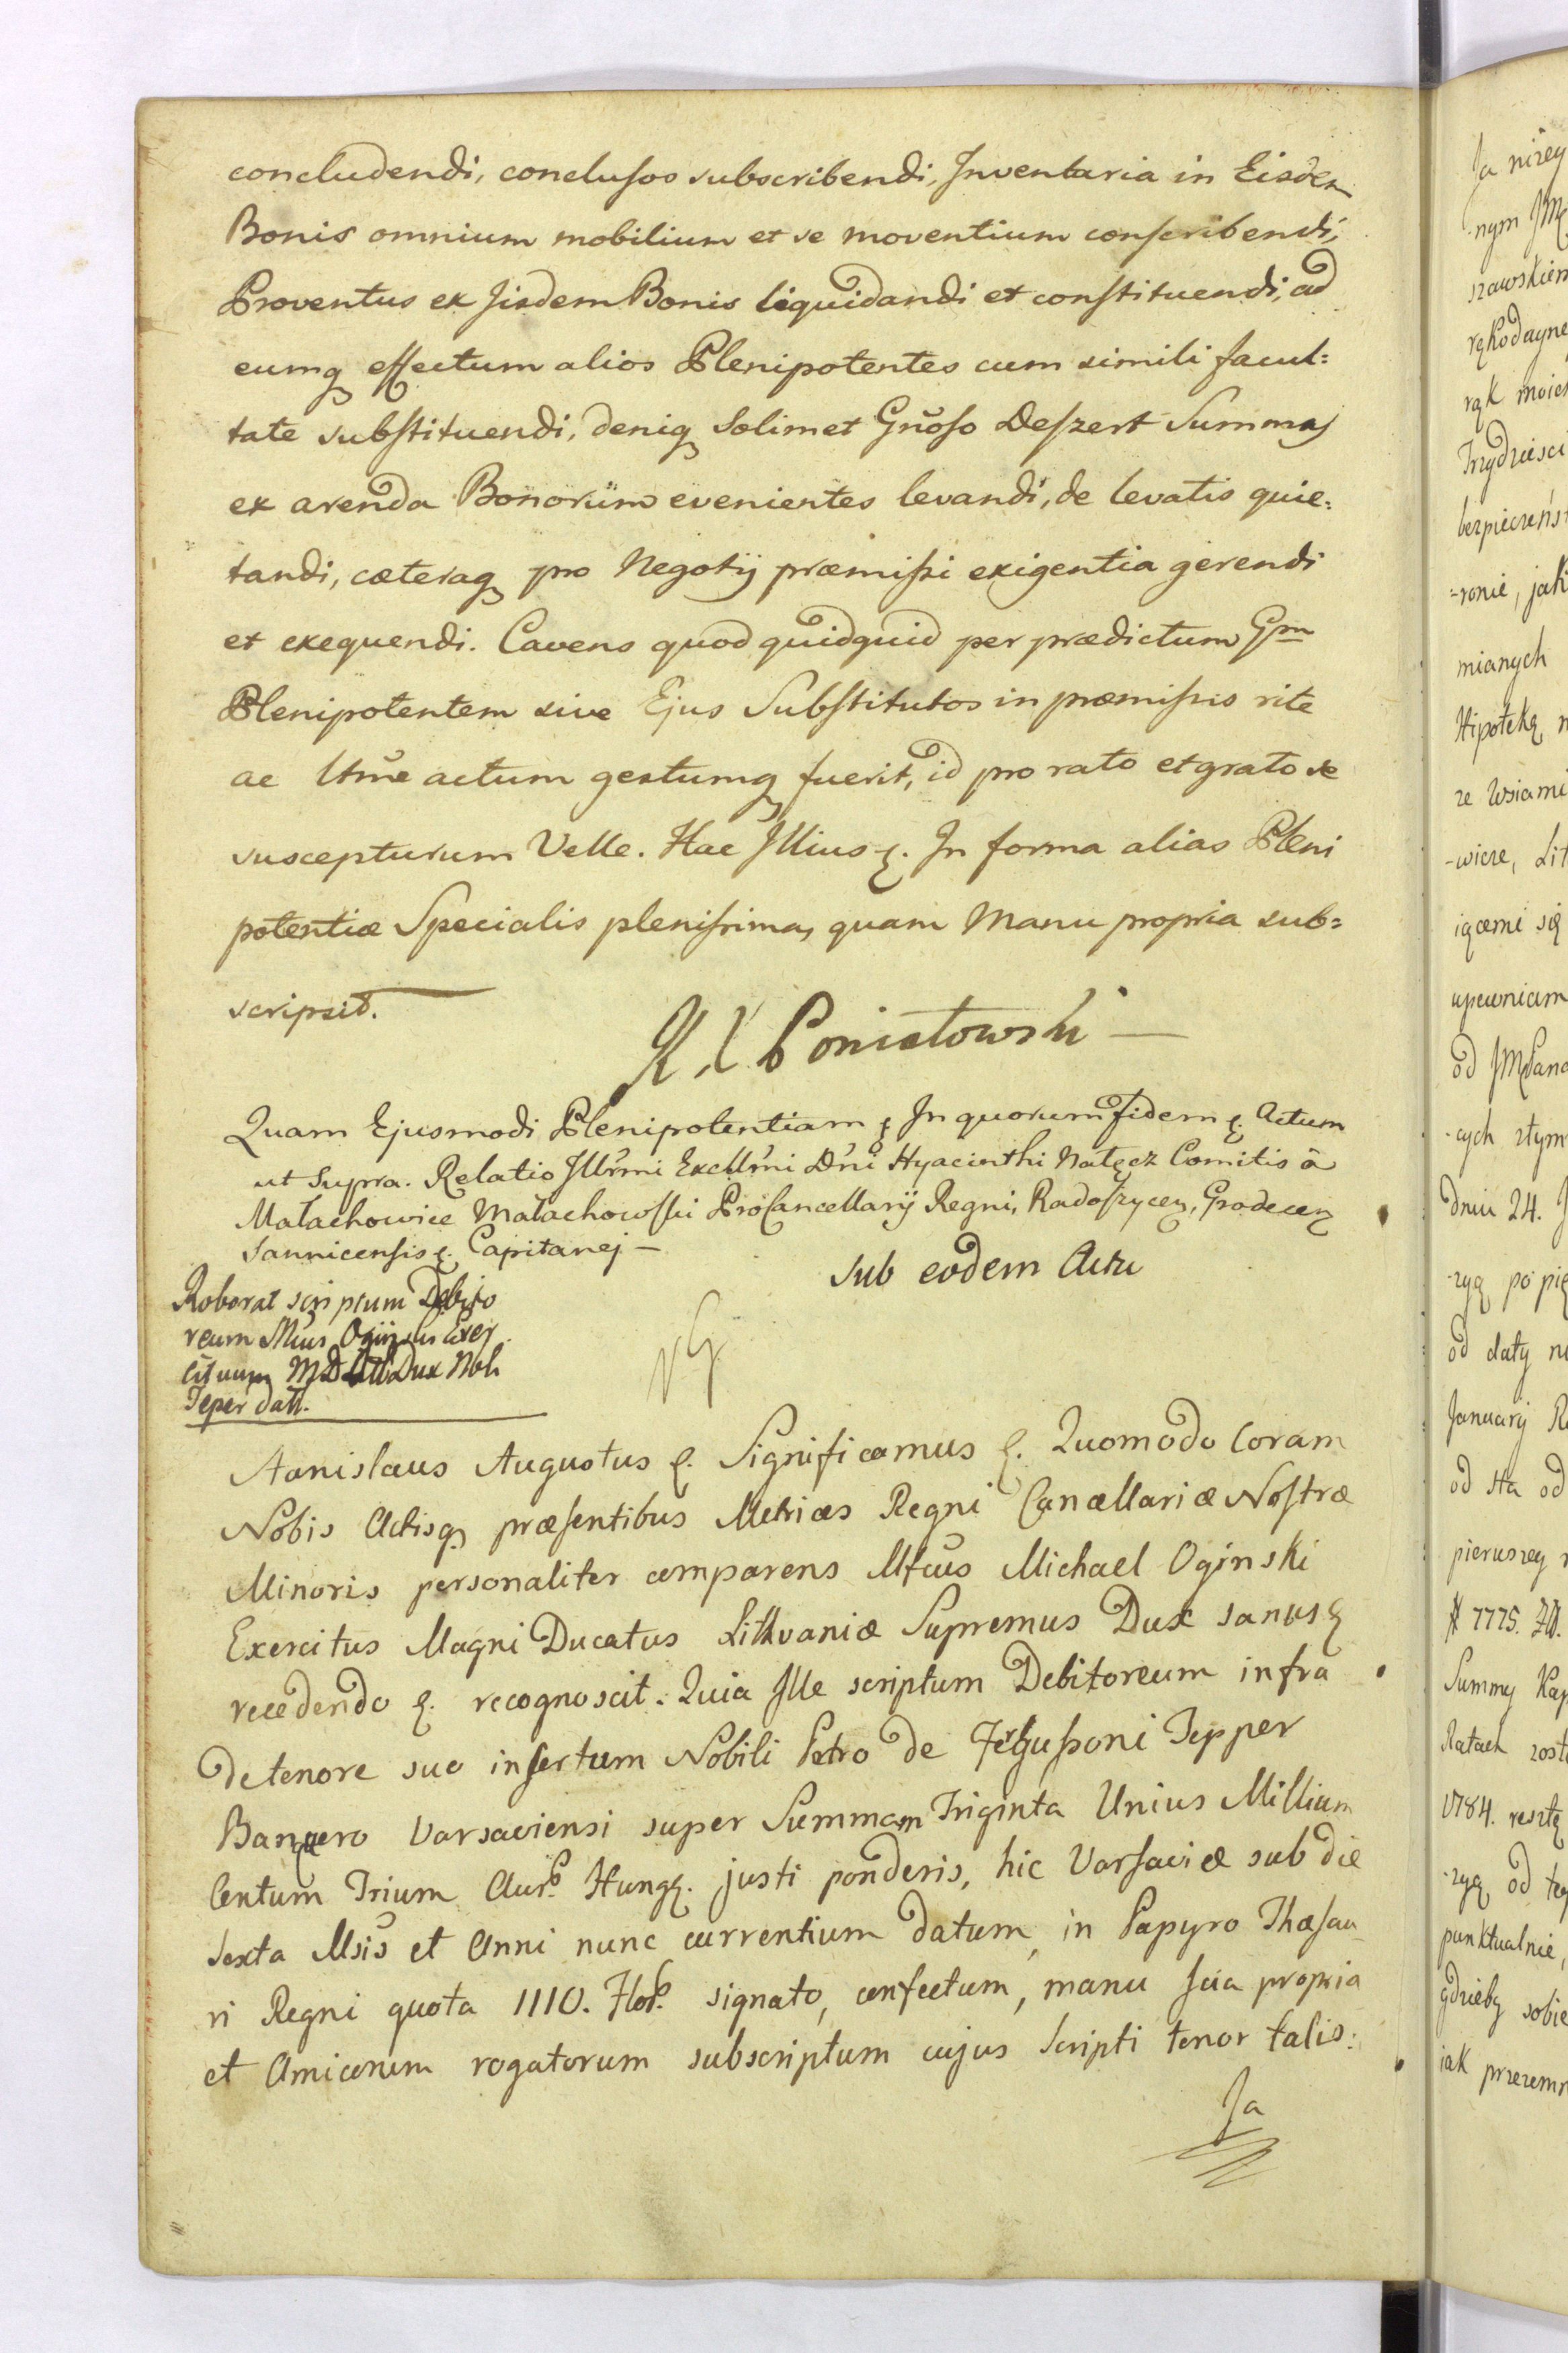 concludendi, conclusos subscribendi, Inventaria in Eisdem
Bonis omnium mobilium et se moventium conscribendi,
Proventus ex Iisdem Bonis liquidandi et constituendi, ad
eumq effectum alios Plenipotentes cum simili facul=
tate substituendi, deniq Solimet Gñoso Deszert Summas
ex arenda Bonorum evenientes levandi, de levatis quie=
tandi, cæteraq pro Negotij præmissi exigentia gerendi
et exequendi. Cavens quod quidquid per prædictum Gm
Plenipotentem sive Ejus Substitutos in præmissis rite
ac ltme actum gestumq fuerit, id pro rato et grato se
suscepturum Velle. Hac Illius &. In forma alias Pleni
potentiæ Specialis plenissima, quam Manu propria sub=
scripsit.
K. X Poniatowski
Quam Ejusmodi Plenipotentiam & In quorum fidem &. Actum
ut Supra. Relatio Illrmi Excllmi Dni Hyacinthi Nałęcz Comitis à
Małachowice Małachowski ProCancellarij Regni, Radoszycen, Grodecen
Sannicensis &. Capitanej —
Sub eodem Actu
Roborat scriptum Debito
reum Mcus Oginski Exer
cituum MD Litt Dux Nob
Teper dati.
Stanislaus Augustus &. Significamus &. Quomodo Coram
Nobis Actisq præsentibus Metrices Regni Cancellariæ Nostræ
Minoris personaliter comparens Mfcus Michael Oginski
Exercitus Magni Ducatus Lithvaniæ Supremus Dux sanus &
recedendo &. recognoscit. Quia Ille scriptum Debitoreum infra
de tenore suo insertum Nobili Petro de Fergussoni Tepper
Banquero Varsaviensi super Summam Triginta Unius Millium
Centum Trium Aur. Hung. justi ponderis, hic Varsaviæ sub die
Sexta Msis et Anni nunc currentium datum, in Papyro Thæsau
ri Regni quota 1110. Flor. signato, confectum, manu sua propria
et Amicorum rogatorum subscriptum cujus Scripti tenor talis:
Ja
Ja niżey
nym JM
szawskiem
rękodayne
rąk moich
Trzydzieści
bezpieczeńs
-ronie, jak
mianych
Hipotekę n
ze Wsiami
-wicze, Lit
iącemi się
upewniam
od JMPana
-cych złym
dniu 24. J
-zyą po pię
od daty n
January R
od sta od
pierwszey
# 7775. Zł.
Summy Kap
Ratach zost
1784. resztę
-zyą od teg
punktualnie,
gdzieby sobie
iak przezemn